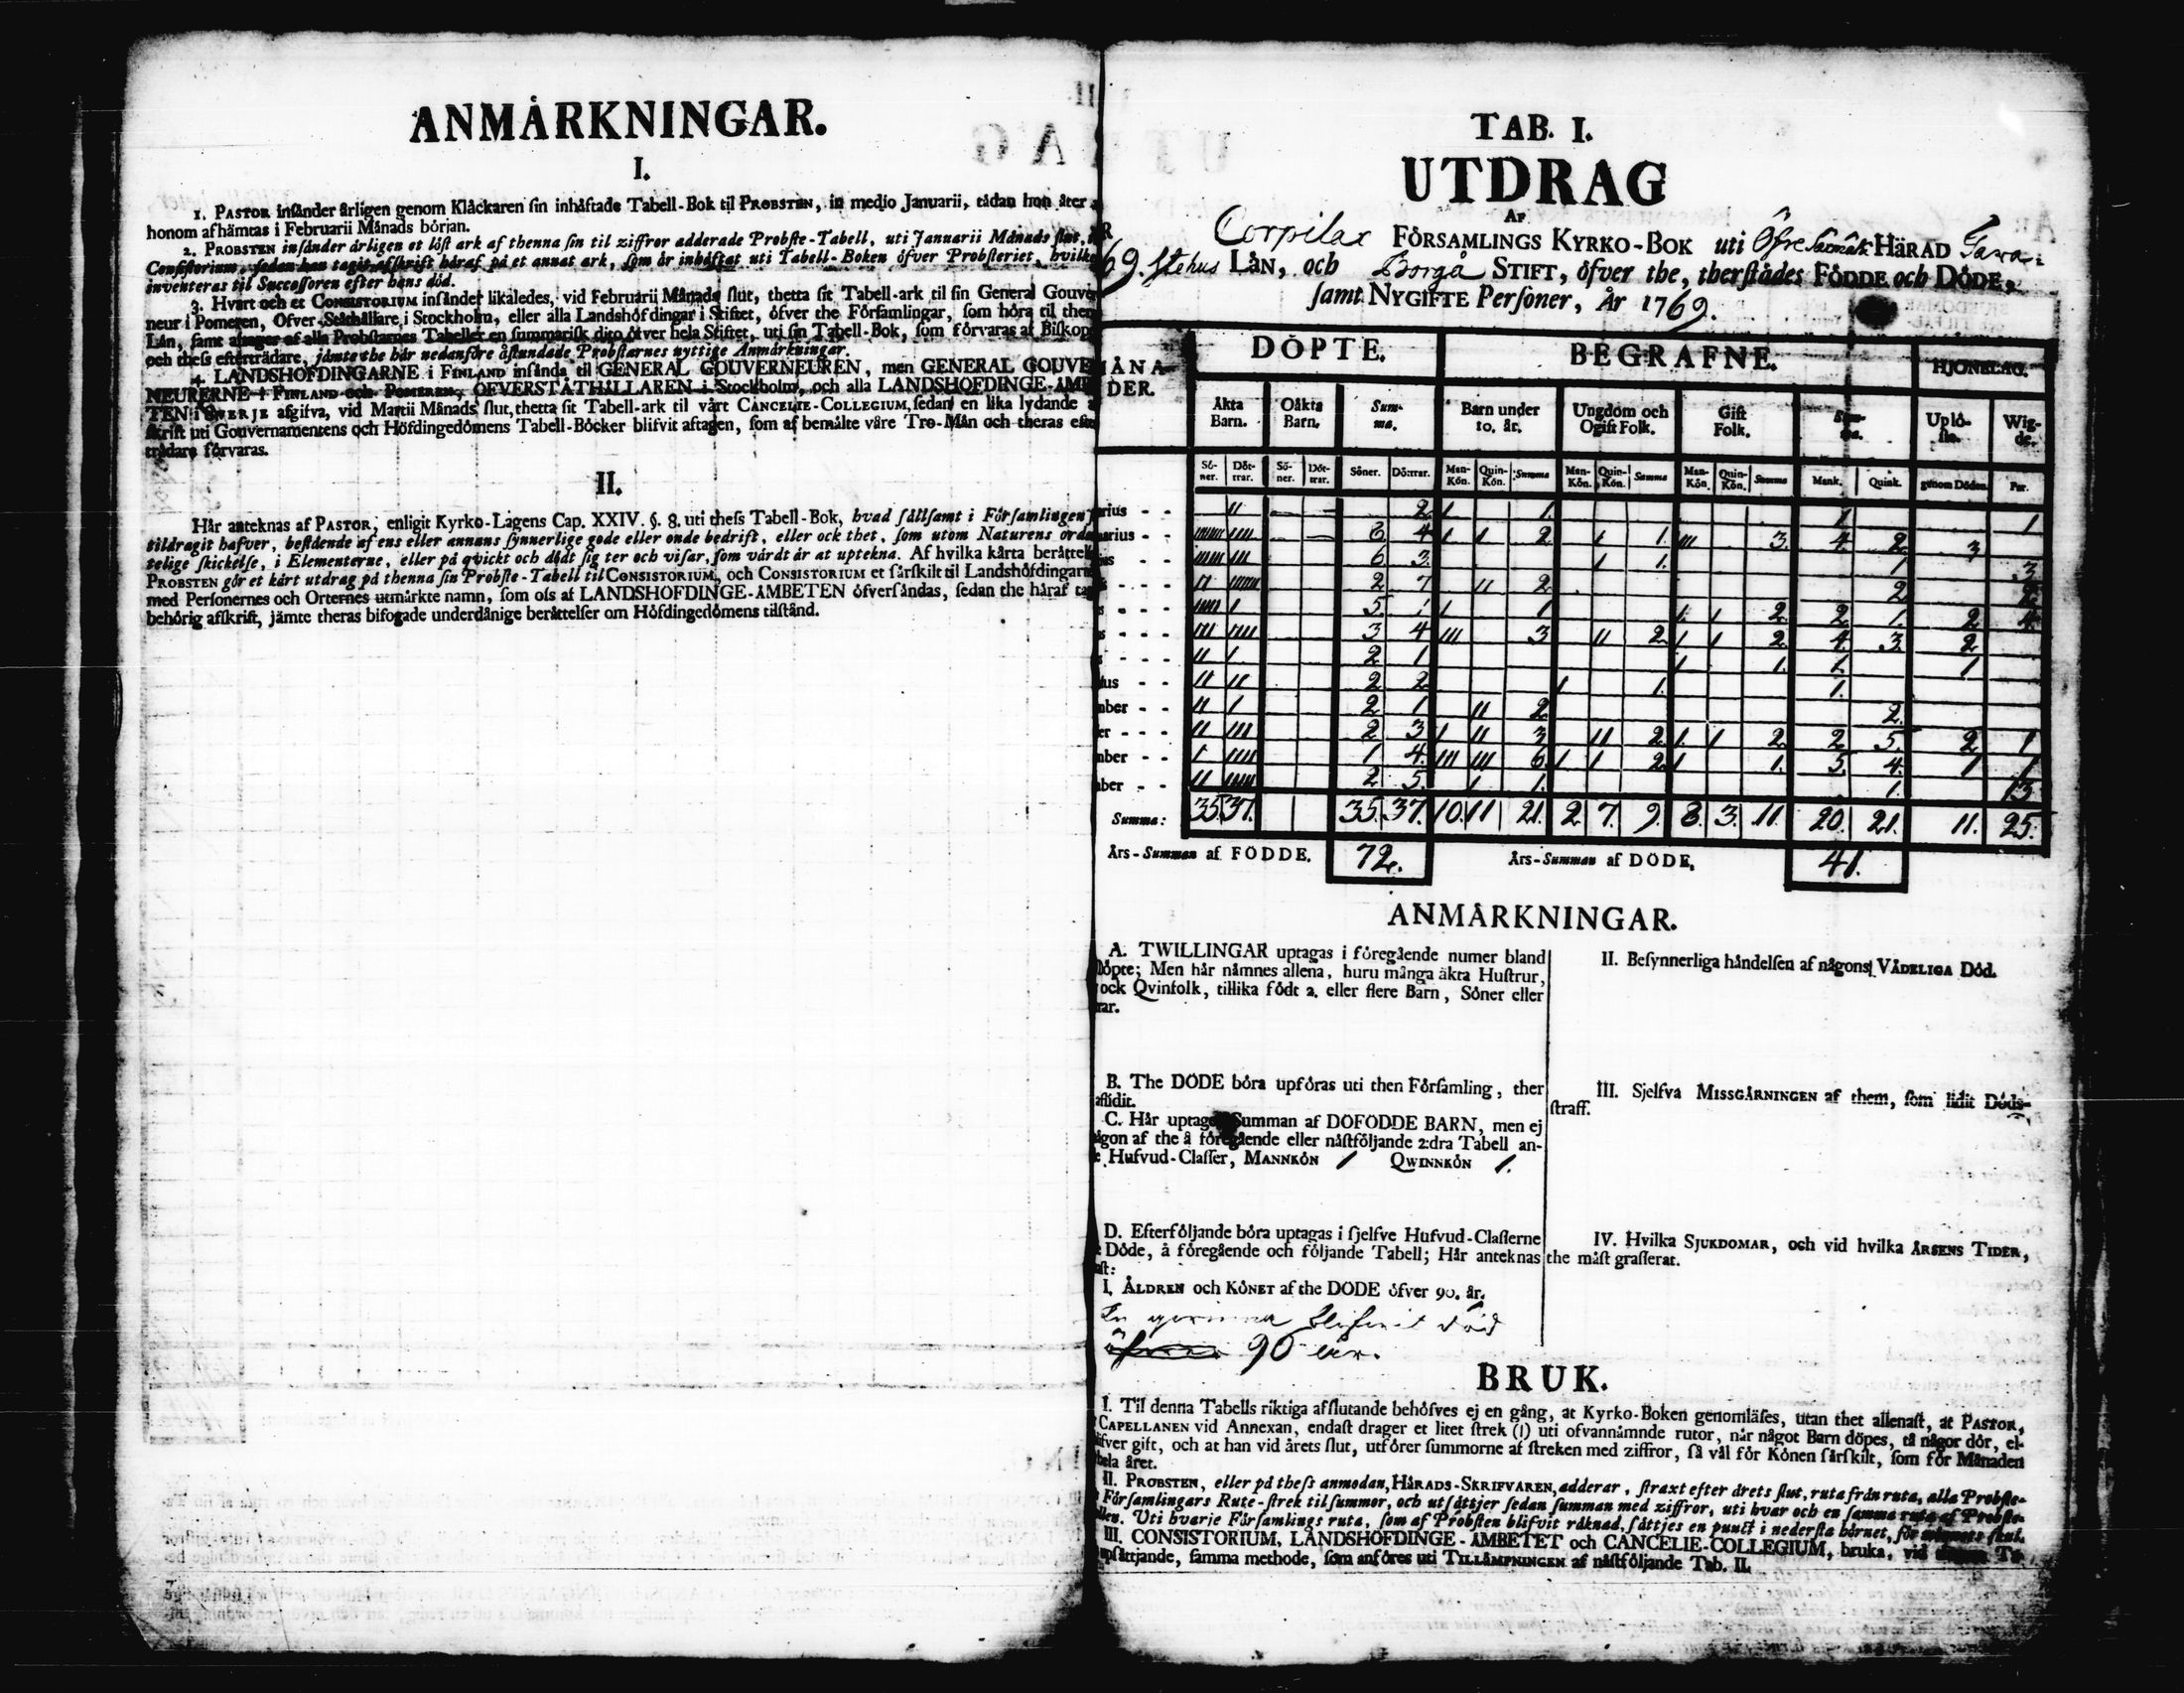 ANMÅRKNINGAR.
I.
1. PASTOR insånder årligen genom Klåckaren sin inhåftade Tabell-Bok til PROBSTEN, in medio Januarii, tådan hon åter
honom afhämtas i Februarii Månads början.
2. PROBSTEN insånder årligen et löst ark af thenna sin til ziffror adderade Probste-Tabell, uti Januarii Månads slut, t
Consistorium, sedan han tagit afskrift håraf på et annat ark, som år inhåftat uti Tabell-Boken öfver Probsteriet, hvilke
inventeras til Successoren efter hans död.
3. Hvart och et CONSISTORIUM insåndet likaledes, vid Februarii Månads slut, thetta sit Tabell-ark til sin General Gouver
neur i Pomeren, Öfver-Ståthållare i Stockholm, eller alla Landshöfdingar i Stiftet, öfver the Församlingar, som höra til then
Lån, samt af alla Probstarnes Tabeller en summarisk dito öfver hela Stiftet, uti sin Tabell-Bok, som förvaras af Biskop
och thess efterträdare, jämte the hår nedanföre åstundade Probstarnes nyttige Anmårkningar.
4. LANDSHÖFDINGARNE i FINLAND insånda til GENERAL GOUVERNEUREN, men GENERAL GOUVE
NEURERNE i FINLAND och POMEREN, ÖFVERSTÅTHÅLLAREN i Stockholm, och alla LANDSHÖFDINGE-ÅMB
TEN i SWERJE afgifva, vid Martii Månads slut, thetta sit Tabell-ark til vårt CANCELIE-COLLEGIUM, sedan en lika lydande a
skrift uti Gouvernamentens och Höfdingedömens Tabell-Böcker blifvit aftagen, som af bemålte våre Tro-Mån och theras efte
trädare förvaras.
II.
Hår anteknas af PASTOR, enligit Kyrko-Lagens Cap. XXIV. §. 8. uti thess Tabell-Bok, hvad sållsamt i Församlingen
tildragit hafver, bestående af ens eller annans synnerlige gode eller onde bedrift, eller ock thet, som utom Naturens orde
telige skickelse, i Elementerne, eller på qvickt och dödt sig ter och visar, som vårdt år at uptekna. Af hvilka kårta beråttel
PROBSTEN gör et kårt utdrag på thenna sin Probste-Tabell til CONSISTORIUM, och CONSISTORIUM et sårskilt til Landshöfdingarn
med Personernes och Orternes utmårkte namn, som oss af LANDSHÖFDINGE-ÅMBETEN öfversåndas, sedan the håraf tag
behörig afskrift, jämte theras bifogade underdånige beråttelser om Höfdingedömens tilstånd.
TAB. I.
UTDRAG
AF
Corpilax FÖRSAMLINGS KYRKO-BOK uti Öfre HÄRAD Tava-
69. stehus LÅN, och Borgå STIFT, öfver the, therstädes FÖDDE och DÖDE,
samt NYGIFTE Personer, År 1769.
MÅNA-DER. DÖPTE. BEGRAFNE. HJONELAG.
Äkta Barn. Oäkta Barn. Sum-ma. Barn under 10. år. Ungdom och Ogift Folk. Gift Folk. Sum-ma. Uplö-ste. Wig-de.
Sö-ner. Döt-trar. Sö-ner. Döt-trar. Söner. Döttrar. Man-Kön. Quin-Kön. Summa Man-Kön. Quin-Kön. Summa Man-Kön. Quin-Kön. Summa Mank. Quink. genom Döden. Par.
arius - II 2 I 1. 1 1
uarius - - IIIIII IIII 6. 4 I I 2 I 1. III 3. 4. 2. 3
us - - 6 3. I 1. 1 3
- - - II IIIIIII 2 7 II 2 2
- - - IIIII I 5. 1 I 1 I I 2 2 1. 2 4
- - - III IIII 3 4 III 3 II 2 I I 2 4. 3. 2
- - - II I 2 1 I 1. 1. 1
us - - II II 2 2 I 1. 1.
mber - - II I 2 1 II 2 2.
er - - - II III 2 3 I II 3 II 2 I I 2 2 5. 2 1
mber - - I IIII 1 4. III III 6. I I 2 I 1. 5. 4. 1 1
ber - - II IIIII 2 5. I 1. 1. 13
Summa: 35. 37. 35. 37. 10. 11 21. 2 7. 9. 8. 3. 11. 20. 21. 11. 25.
Års-Summan af FÖDDE. 72. Års-Summan af DÖDE. 41.
ANMÅRKNINGAR.
A. TWILLINGAR uptagas i föregående numer bland
Döpte; Men hår nåmnes allena, huru många äkta Hustrur,
ock Qvinfolk, tillika födt 2. eller flere Barn, Söner eller
rar.
B. The DÖDE böra upföras uti then Församling, ther
aflidit.
C. Hår uptages Summan af DÖFÖDDE BARN, men ej
någon af the å föregående eller nåstföljande 2:dra Tabell an-
Hufvud-Classer, MANNKÖN 1 QWINNKÖN 1.
D. Efterföljande böra uptagas i sjelfve Hufvud-Classerne
Döde, å föregående och följande Tabell; Hår anteknas
ast:
I. ÅLDREN och KÖNET af the DÖDE öfver 90. år.
En blifvit död
90 år.
II. Besynnerliga håndelsen af någons VÅDELIGA Död.
III. Sjelfva MISSGÅRNINGEN af them, som lidit Döds-
straff.
IV. Hvilka SJUKDOMAR, och vid hvilka ÅRSENS TIDER,
the måst grasserat.
BRUK.
I. Til denna Tabells riktiga afslutande behöfves ej en gång, at Kyrko-Boken genomläses, utan thet allenast, at PASTOR,
CAPELLANEN vid Annexan, endast drager et litet strek (I) uti ofvannåmnde rutor, når något Barn döpes, tå någor dör, el-
ifver gift, och at han vid årets slut, utförer summorne af streken med ziffror, så vål för Könen sårskilt, som för Månaden
hela året.
II. PROBSTEN, eller på thess anmodan, HÅRADS-SKRIFVAREN, adderar, straxt efter årets slut, ruta från ruta, alla Probste-
Församlingars Rute-strek til summor, och utsåttjer sedan summan med ziffror, uti hvar och en samma ruta af Probste-
llen. Uti hvarje Församlings ruta, som af Probsten blifvit råknad, såttjes en punct i nedersta hörnet, för
III. CONSISTORIUM, LANDSHÖFDINGE-ÅMBETET och CANCELIE-COLLEGIUM, bruka, vid
upsåttjande, samma methode, som anföres uti TILLÅMPNINGEN af nåstföljande Tab. II.